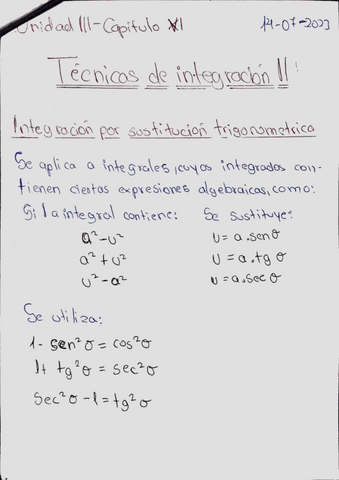 Unidad III - Capitulo XI 14-07-2023
Técnicas de integración II:
Integración por sustitución trigonometrica
Se aplica a integrales, cuyos integrados con-
tienen ciertas expresiones algebraicas, como:
Si la integral contiene: Se sustituye:
a² - u² u = a.sen θ
a² + u² u = a.tg θ
u² - a² u = a.sec θ
Se utiliza:
1 - sen² θ = cos² θ
1 + tg² θ = sec² θ
sec² θ - 1 = tg² θ